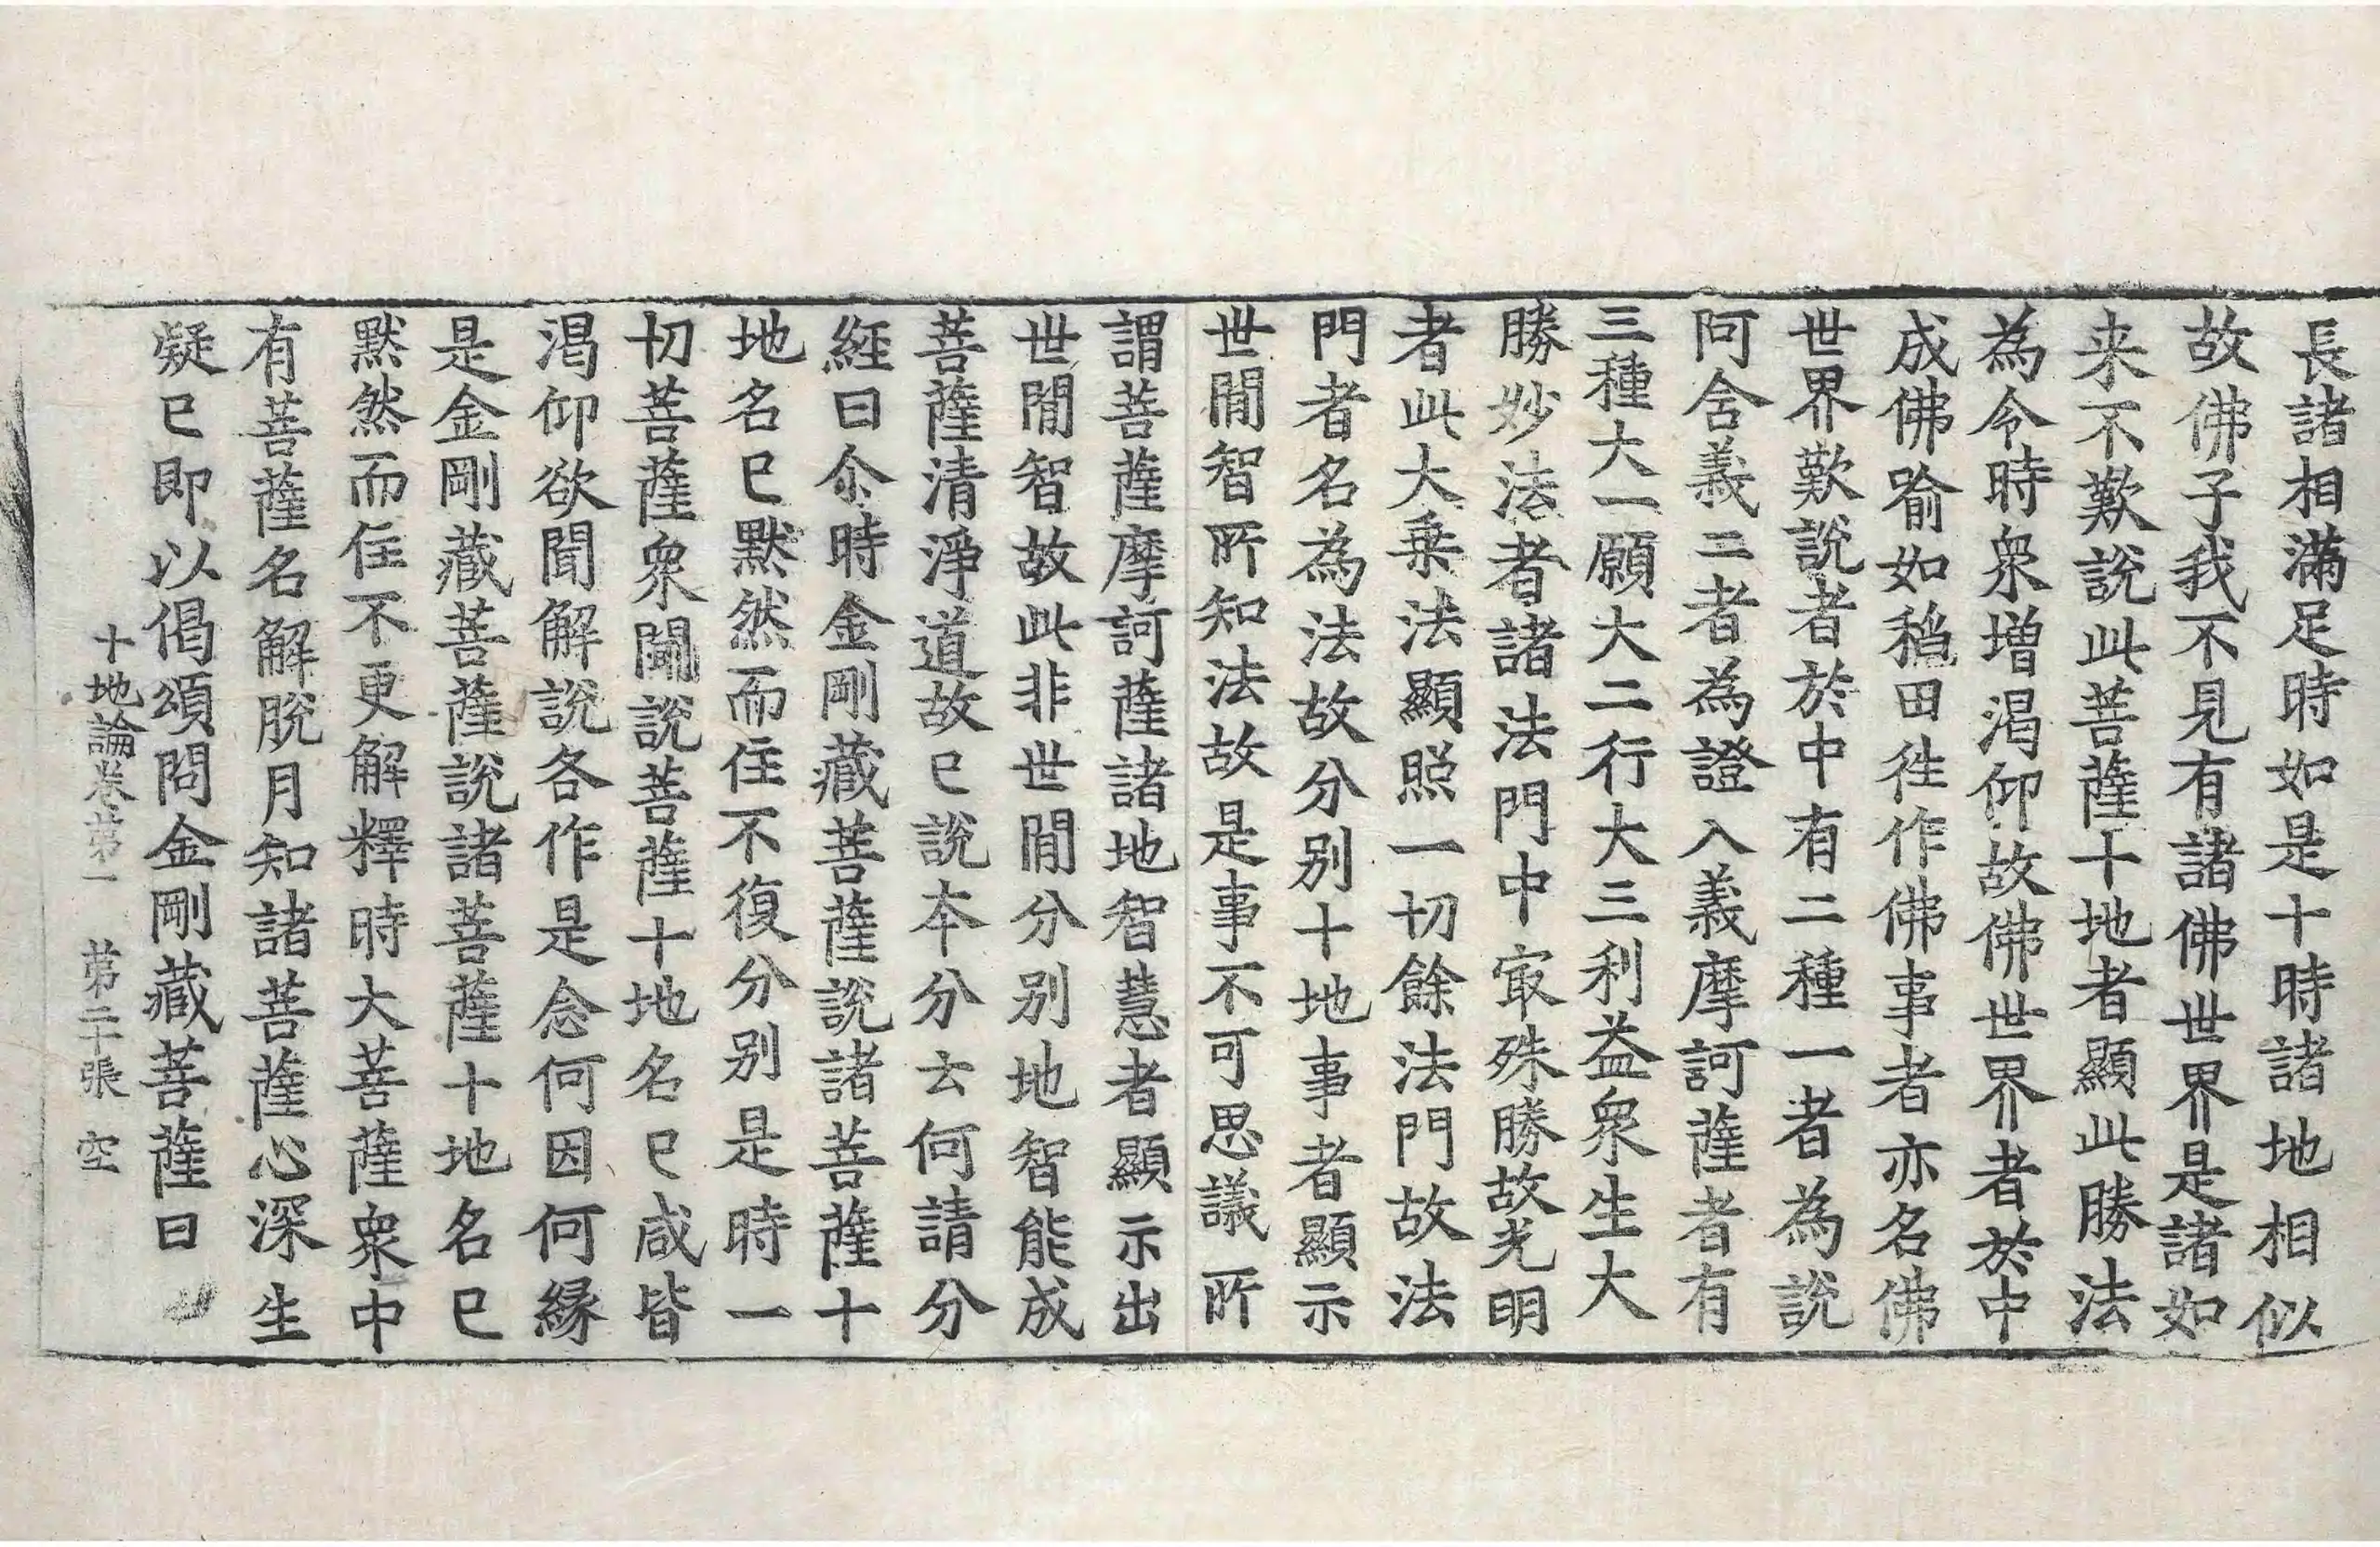 長諸相滿足時如是十時諸地相似
故佛子我不見有諸佛世界是諸如
来不歎說此菩薩十地者顯此勝法
為令時衆增渴仰故佛世界者於中
成佛喻如稻田徃作佛事者亦名佛
世界歎說者於中有二種一者為說
阿含義二者為證入義摩訶薩者有
三種大一願大二行大三利益衆生大
勝妙法者諸法門中冣殊勝故光明
者此大乗法顯照一切餘法門故法
門者名為法故分别十地事者顯示
世間智所知法故是事不可思議所
謂菩薩摩訶薩諸地智慧者顯示出
世間智故此非世間分别地智能成
菩薩清淨道故已說本分云何請分
經曰尒時金剛藏菩薩說諸菩薩十
地名已默然而住不復分别是時一
切菩薩衆聞說菩薩十地名已咸皆
渴仰欲聞解說各作是念何因何緣
是金剛藏菩薩說諸菩薩十地名已
默然而住不更解釋時大菩薩衆中
有菩薩名解脫月知諸菩薩心深生
疑已即以偈頌問金剛藏菩薩曰
十地論卷苐一 苐二十張 空